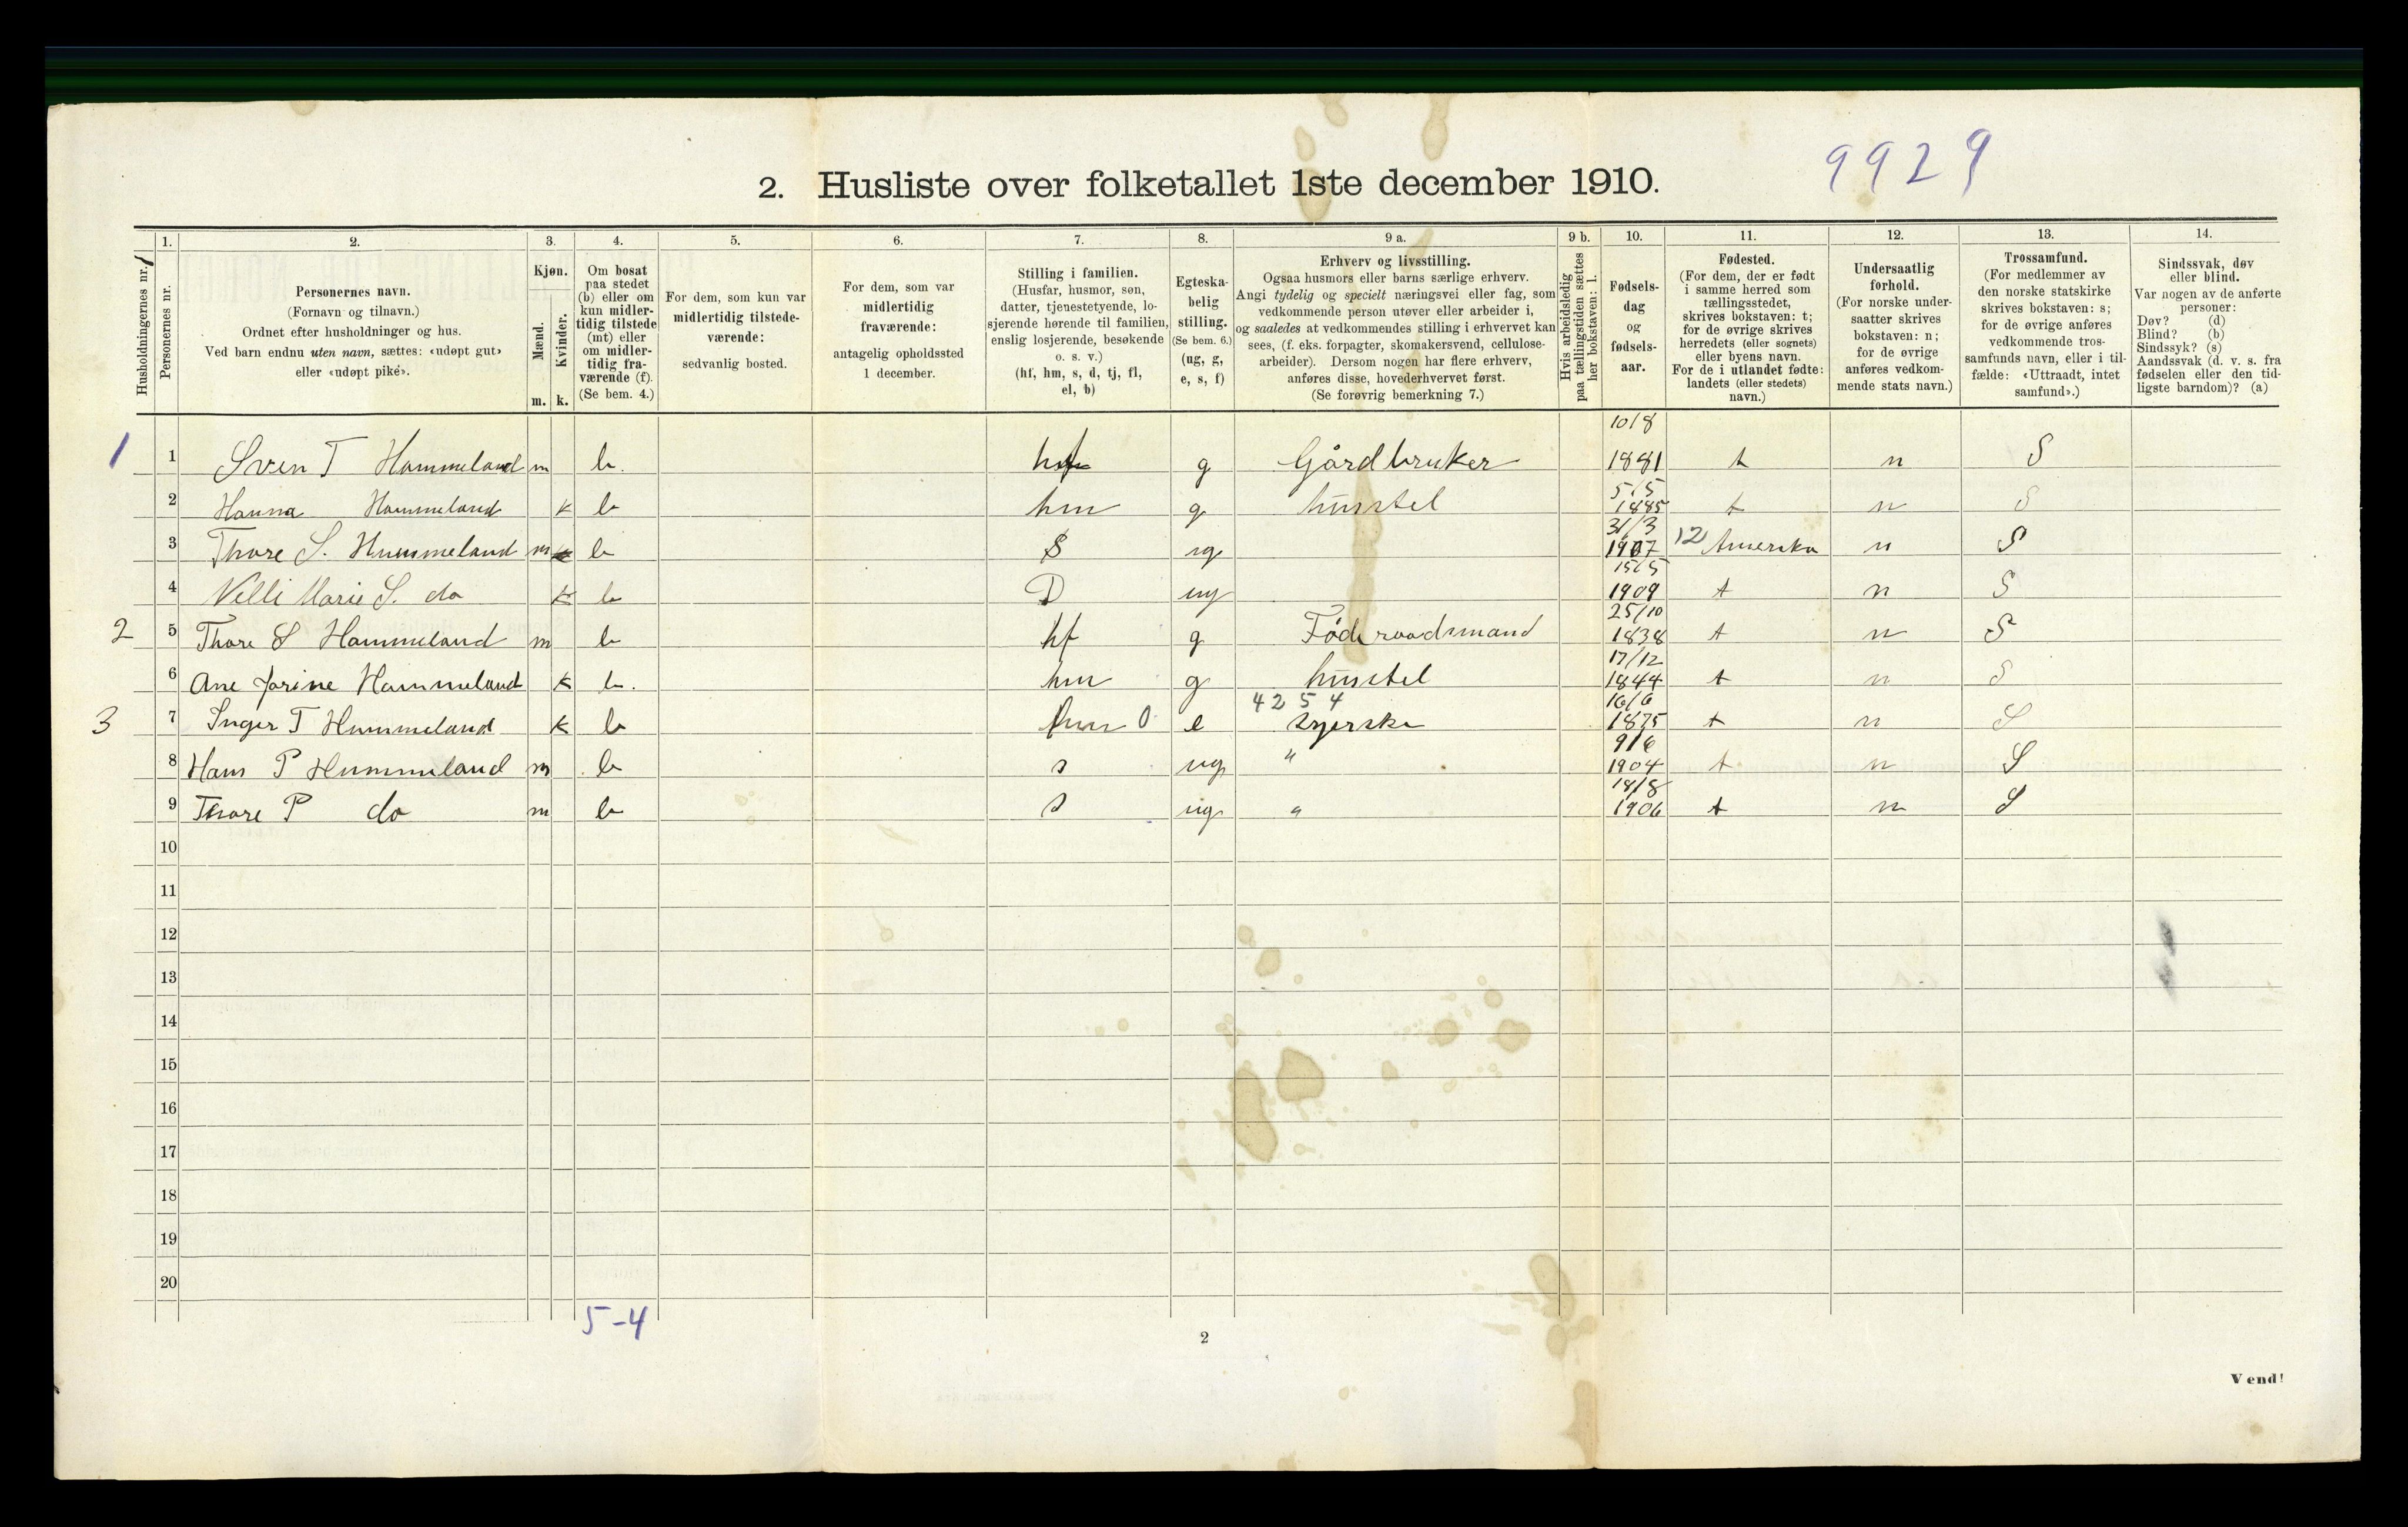 9929
2. Husliste over folketallet 1ste december 1910.
Husholdningernes nr.
1.
Personernes nr.
2.
Personernes navn.
(Fornavn og tilnavn.)
Ordnet efter husholdninger og hus.
Ved barn endnu uten navn, sættes: «udøpt gut»
eller «udøpt pike».
3.
Kjøn.
Mænd.
Kvinder.
m. k.
4.
Om bosat
paa stedet
(b) eller om
kun midler-
tidig tilstede
(mt) eller
om midler-
tidig fra-
værende (f).
(Se bem. 4.)
5.
For dem, som kun var
midlertidig tilstede-
værende:
sedvanlig bosted.
6.
For dem, som var
midlertidig
fraværende:
antagelig opholdssted
1 december.
7.
Stilling i familien.
(Husfar, husmor, søn,
datter, tjenestetyende, lo-
sjerende hørende til familien,
enslig losjerende, besøkende
o. s. v.)
(hf, hm, s, d, tj, fl,
el, b)
8.
Egteska-
belig
stilling.
(Se bem. 6.)
(ug, g,
e, s, f)
9 a.
Erhverv og livsstilling.
Ogsaa husmors eller barns særlige erhverv.
Angi tydelig og specielt næringsvei eller fag, som
vedkommende person utøver eller arbeider i,
og saaledes at vedkommendes stilling i erhvervet kan
sees, (f. eks. forpagter, skomakersvend, cellulose-
arbeider). Dersom nogen har flere erhverv,
anføres disse, hovederhvervet først.
(Se forøvrig bemerkning 7.)
9 b.
Hvis arbeidsledig
paa tællingstiden sættes
her bokstaven: l.
10.
Fødsels-
dag
og
fødsels-
aar.
11.
Fødested.
(For dem, der er født
i samme herred som
tællingsstedet,
skrives bokstaven: t;
for de øvrige skrives
herredets (eller sognets)
eller byens navn.
For de i utlandet fødte:
landets (eller stedets)
navn.)
12.
Undersaatlig
forhold.
(For norske under-
saatter skrives
bokstaven: n;
for de øvrige
anføres vedkom-
mende stats navn.)
13.
Trossamfund.
(For medlemmer av
den norske statskirke
skrives bokstaven: s;
for de øvrige anføres
vedkommende tros-
samfunds navn, eller i til-
fælde: «Uttraadt, intet
samfund».)
14.
Sindssvak, døv
eller blind.
Var nogen av de anførte
personer:
Døv? (d)
Blind? (b)
Sindssyk? (s)
Aandssvak (d. v. s. fra
fødselen eller den tid-
ligste barndom)? (a)
1 1 Sven T Hammeland m b. hf g Gårdbruker 10/8 1881 t n S
2 Hanna Hammeland k b hm g hüsstel 5/5 1885 t n S
3 Thore S. Hammeland m b S ug 31/3 1907 12 Amerika n S
4 Nelli Marie S. do k b D ug 15/5 1909 t n S
2 5 Thore S Hammeland m b hf g Föderaadsmand 25/10 1838 t n S
6 Ane Jorine Hammeland k b. hm g hüsstel 17/12 1844 t n S
4254
3 7 Inger T Hammeland k b hm 0 e Syerske 16/6 1875 t n S
8 Hans P Hammeland m b s ug " 9/6 1904 t n S
9 Thore P do m b s ug " 18/8 1906 t n S
10
11
12
13
14
15
16
17
18
19
20
5-4
2
Vend!